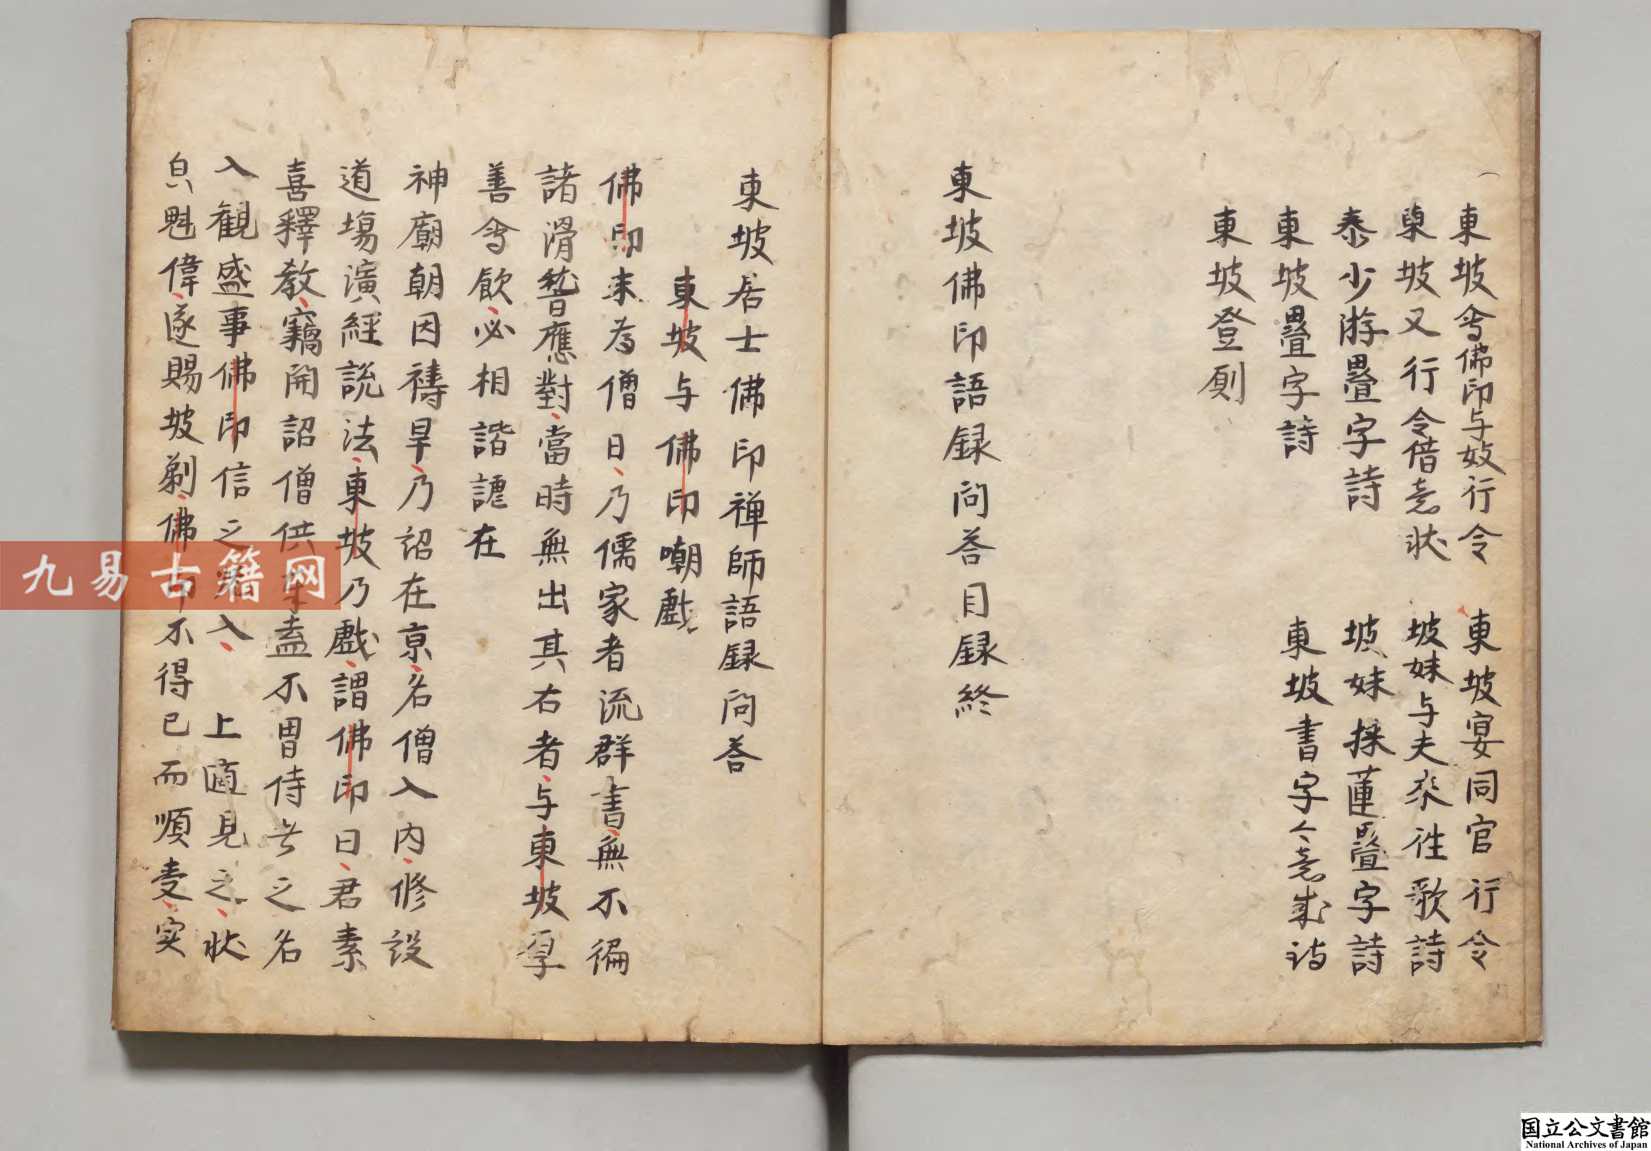 東坡會佛印与妓行令　東坡宴同官行令
東坡又行令借意状　坡妹与夫来往歌詩
秦少游疊字詩　坡妹採蓮疊字詩
東坡疊字詩　東坡書字令意成詩
東坡登厠
東坡佛印語録问荅目録終
東坡居士佛印禅師語録问荅
東坡与佛印嘲戯
佛印未為僧日乃儒家者流群書無不徧
諸滑稽應對當時無出其右者与東坡厚
善會飲必相諧謔在
神廟朝因禱旱乃詔在京名僧入内修設
道場演經説法東坡乃戯謂佛印曰君素
喜釋教竊聞詔僧供奉盍不冒侍者之名
入觀盛事佛印信之入上適見之状
貟魁偉遂賜坡剃佛印不得已而順受实
九易古籍网
国立公文書館
National Archives of Japan